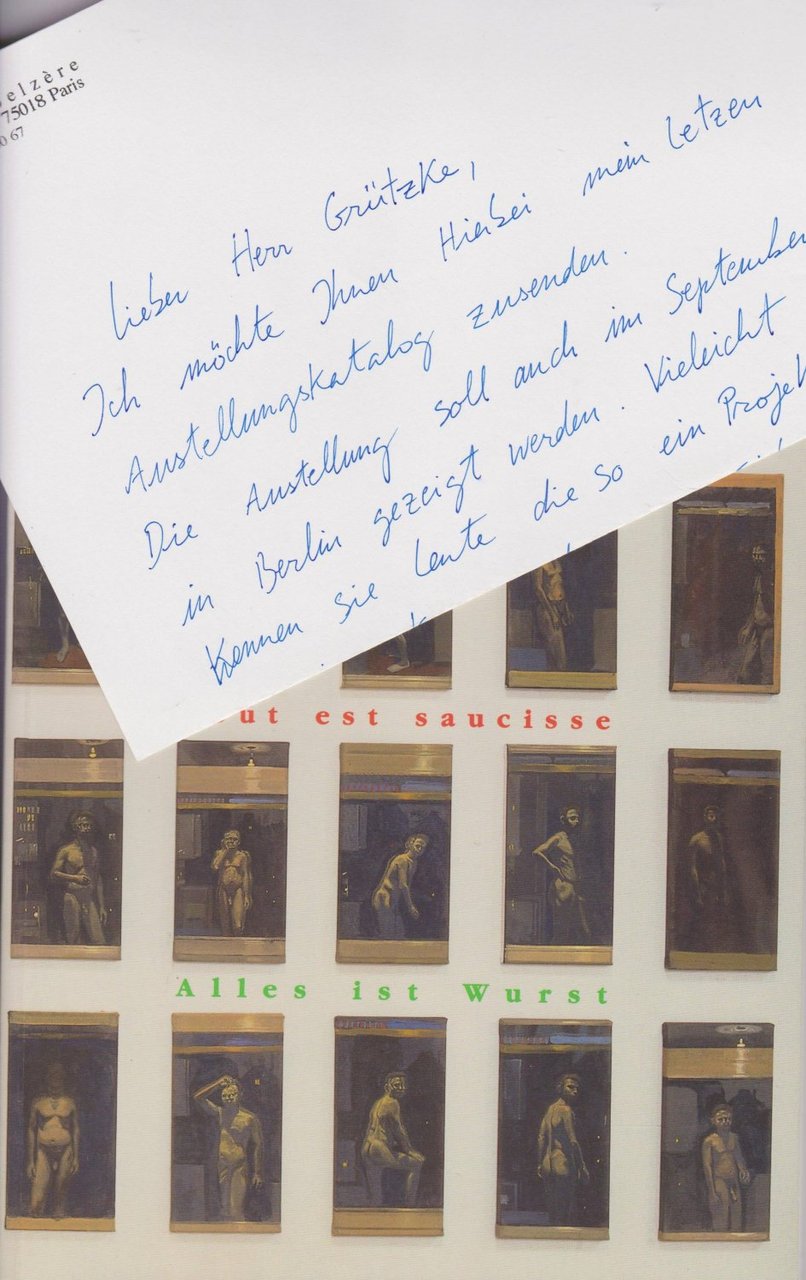 elzère
75018 Paris
0 67
Lieber Herr Grützke,
Ich möchte Ihnen Hierbei mein letzen
Austellungskatalog zusenden.
Die Austellung soll auch im September
in Berlin gezeigt werden. Vieleicht
Kennen Sie Leute die so ein Projek
ut est saucisse
Alles ist Wurst